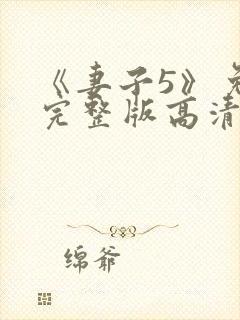 《妻子5》
完整版高清
绵爷